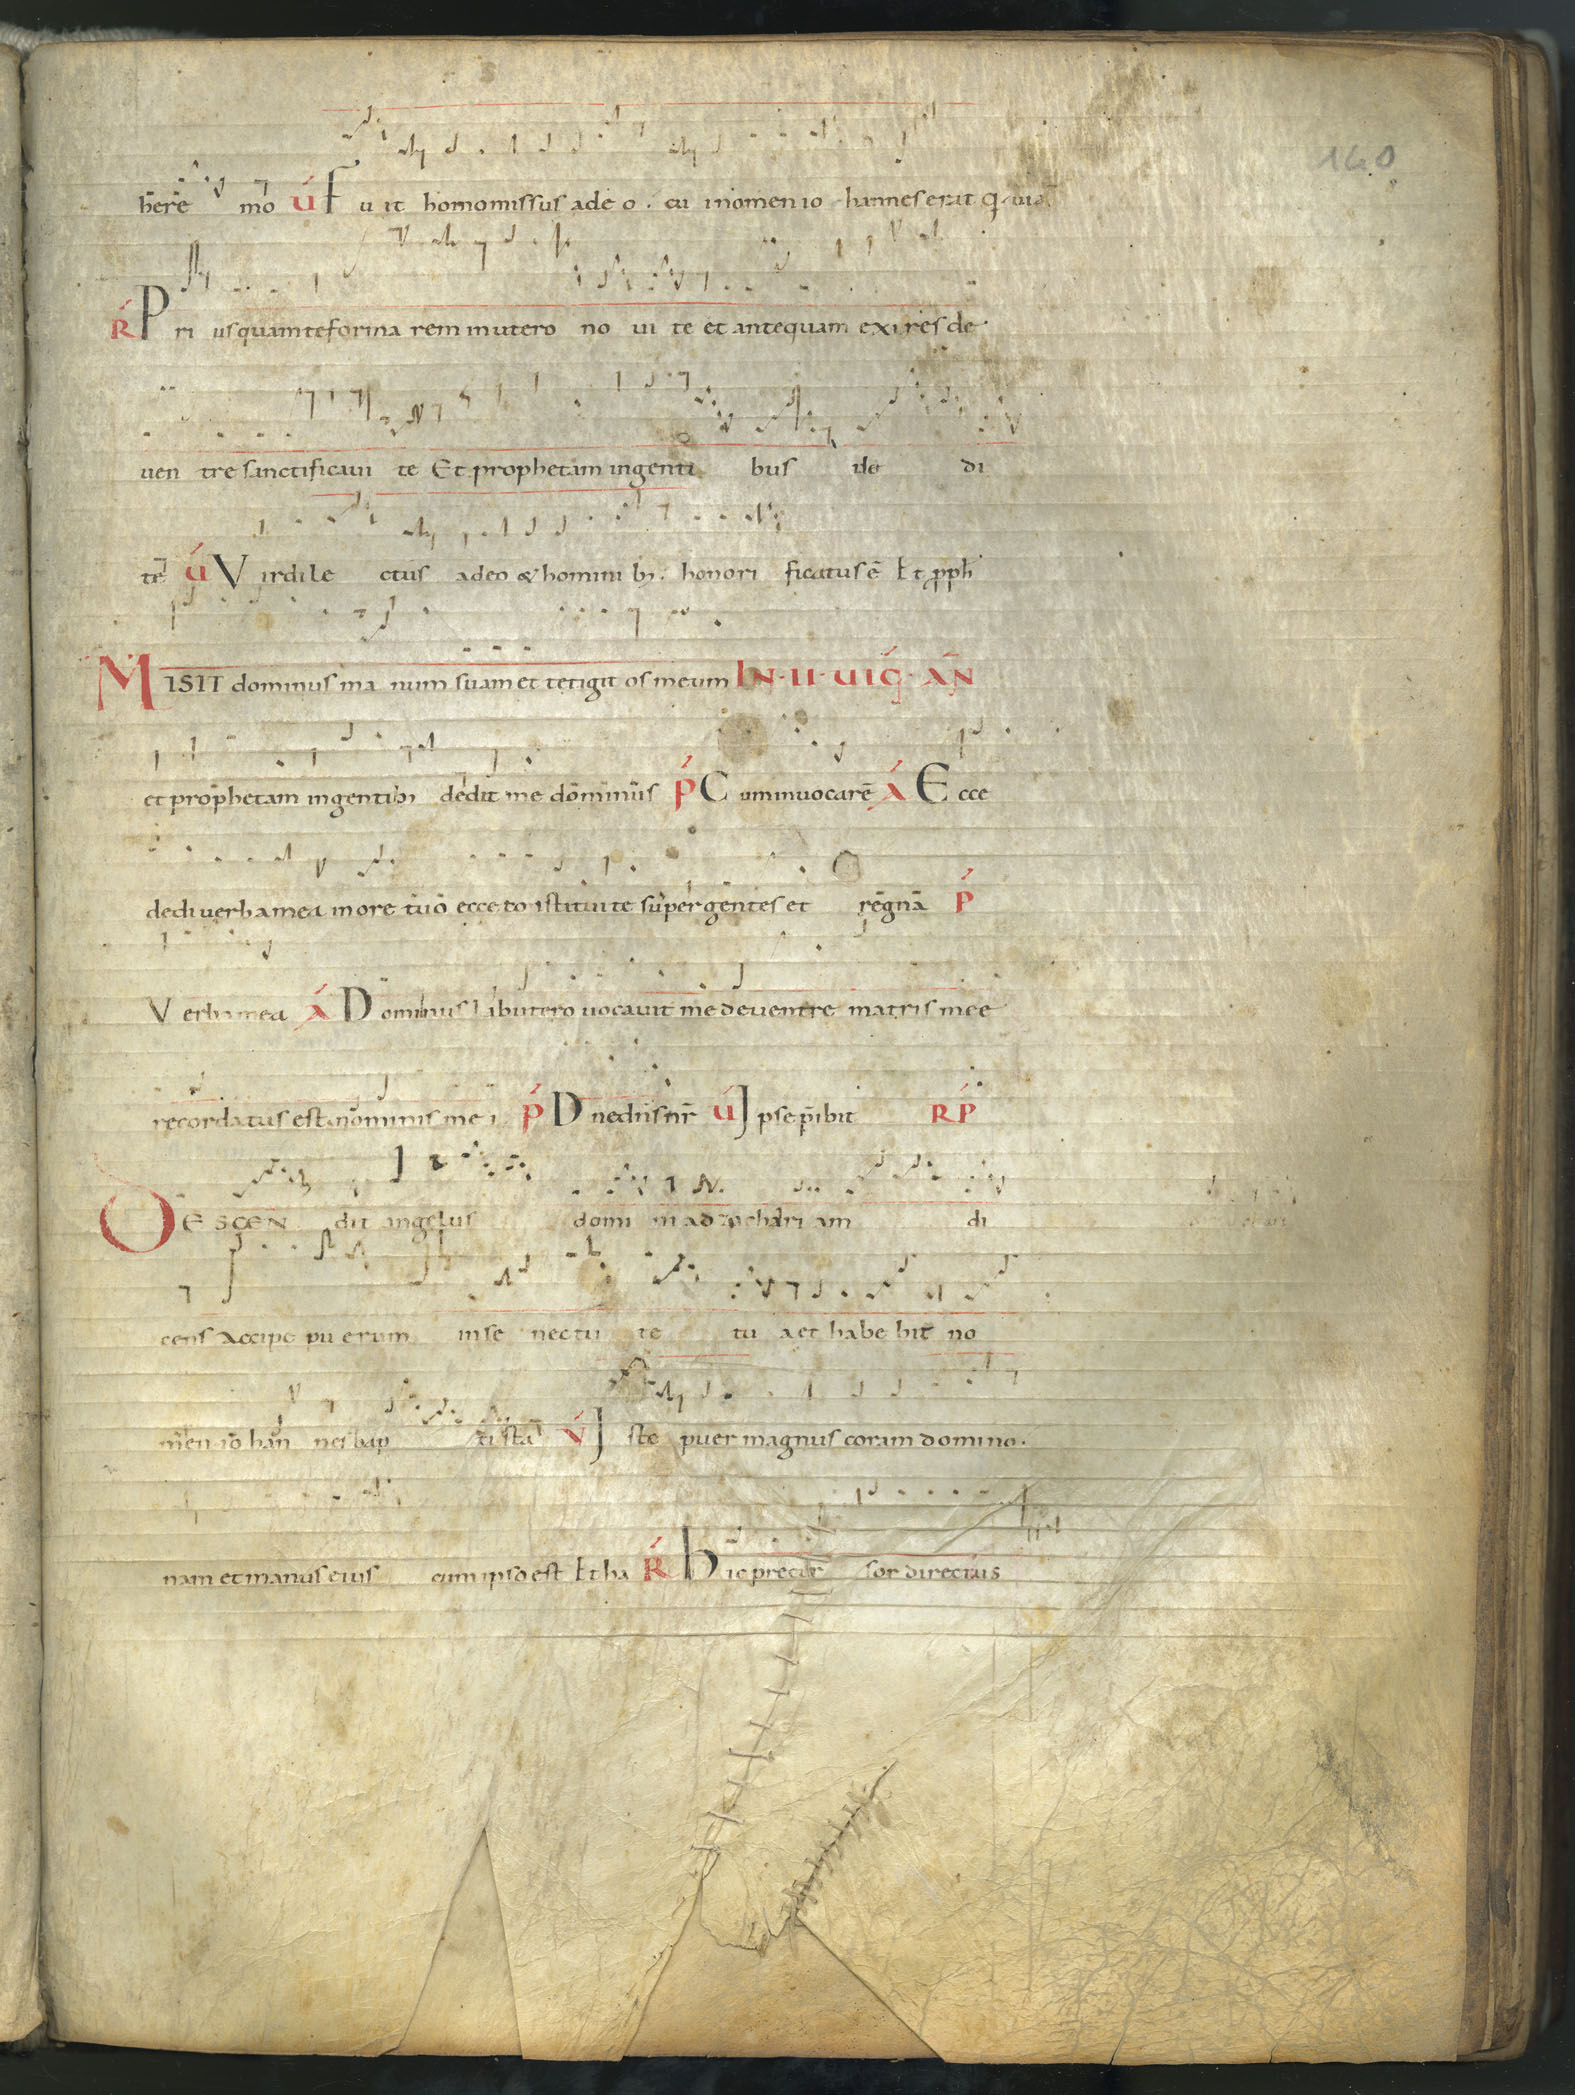 140
h̄erē mo Ú Fuit homo missus a deo. cui nomen iohannes erat q
Ŕ Priusquam te formarem in utero noui te et antequam exires de
uentre sanctificaui te Et prophetam in gentibus de di
te Ú Vir dilectus a deo & hominib; honorificatus ē Et pph̄
MISIT dominus manum suam et tetigit os meum IN·II·UIG̃·AÑ
et prophetam in gentib; dedit me dominus P̃ Cum inuocarē Á Ecce
dedi uerba mea in ore tuo ecce co istitui te super gentes et regna P̃
Verba mea Á Dominus ab utero uocauit me de uentre matris mee
recordatus est nominis mei P̃ Dne dñs nr̄ Ú Ipse p̄ibit RP̃
DESCENdit angelus domini ad zachariam di
cens Accipe puerum in senectute tua et habebit no
men iohannes baptista V́ Iste puer magnus coram domino.
nam et manus eius cum ipso est Et ha Ŕ Hic precursor directus